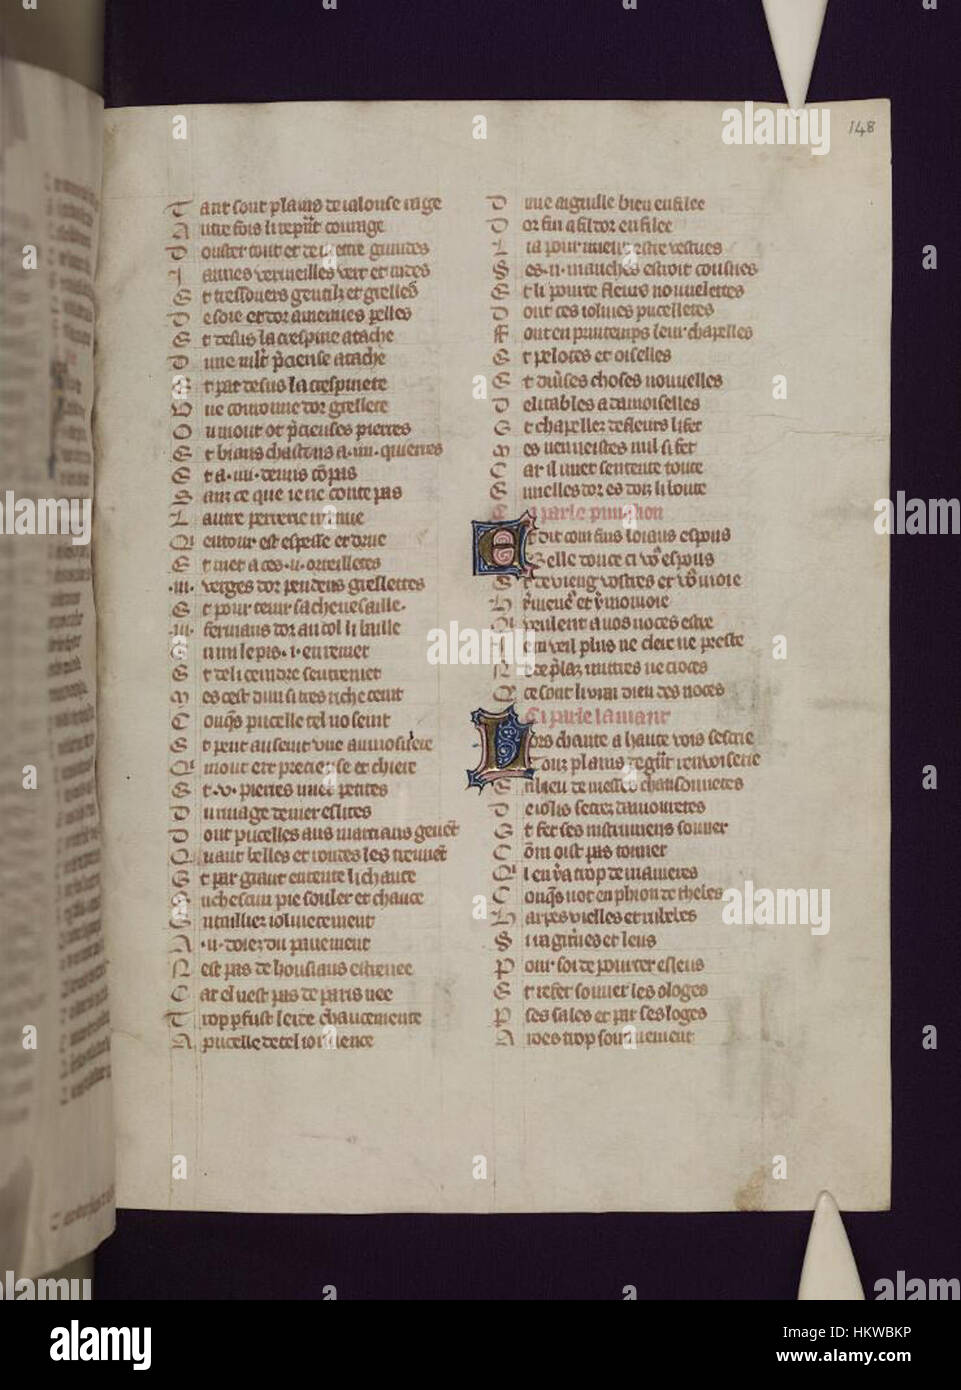 148
T ant sont plains de ialouse rage
A utre fois li reprẽt courage
D ouster tout et de mettre guindes
I aunes vermeilles vert et indes
E t tressouers gentilz et grelles
D e soie et dor a menues pelles
E t desus la crespine atache
D une mlt p̃cieuse atache
E t par desus la crespinete
U ne couronne dor grellete
O u mout ot p̃cieuses pierres
E t biaus chastons a .iiii. quierres
E t a .iiii. demis cõpas
S anz ce que ie ne conte pas
L autre perrerie menue
Q entour est espesse et drue
E t met a ces .ii. oreilletes
.ii. verges dor pendens greslettes
E t pour tenir sa cheuesaille
.ii. fermaus dor au col li baille
E t de li ceindre sentremet
M es cest dun si tres riche ceint
C onq̃s pucelle tel no ceint
E t pent au seint une aumosniere
Q mout ert precieuse et chiere
E t .v. pierres i met petites
D u riuage de mer eslites
D ont pucelles aus martiaus geuẽt
Q uant belles et rondes les treuuẽt
E t par grant entente li chauce
E n chascun pie souler et chauce
E ntailliez ioliuetement
A .ii. doiez du pauement
N est pas de housiaus estrenee
C ar el nest pas de paris nee
T rop p fust le rude chaucemente
A pucelle de tel iouuence
D une aiguille bien enfilee
D or fin a fil dor enfilee
L i a pour mieuz estre vestues
S es .ii. manches estroit cousues
E t li porte fleurs nouuelettes
D ont ces iolines pucelletes
F ont en printemps leur chapelles
E t pelotes et oiselles
E t diu̾ses choses nouuelles
D elitables a damoiselles
E t chapeles de fleurs li fet
M es nen veistes nul si fet
C ar il i met sentente toute
E nnelles dor es doiz li boute
Ci parle pimalion
Et dit com fins loiaus espous
Belle douce ci vo9 espous
E t deuieng vostres et vo9 moie
Q veulent a vos noces estre
I e ni veil plus ne clerc ne prestre
N e de p̃laz mittres ne croces
Q ce sont li vrai dieu des noces
Ci parle lamant
Lors chante a haute vois serie
Touz plains de grãt renuoiserie
E n lieu de messes chansonnetes
D e iolis secrez damouretes
E t fet ses instrumens sonner
C õm oist pas tonner
Q l en i a trop de manieres
C onq̃s not enphion de thebes
H arpes vielles et rubebes
S i ra gigues et leus
P our soi deporter esleus
E t refet sonner les ologes
P ses sales et par ses loges
A roes trop soutiuement
alamy
Image ID: HKWBKP
www.alamy.com